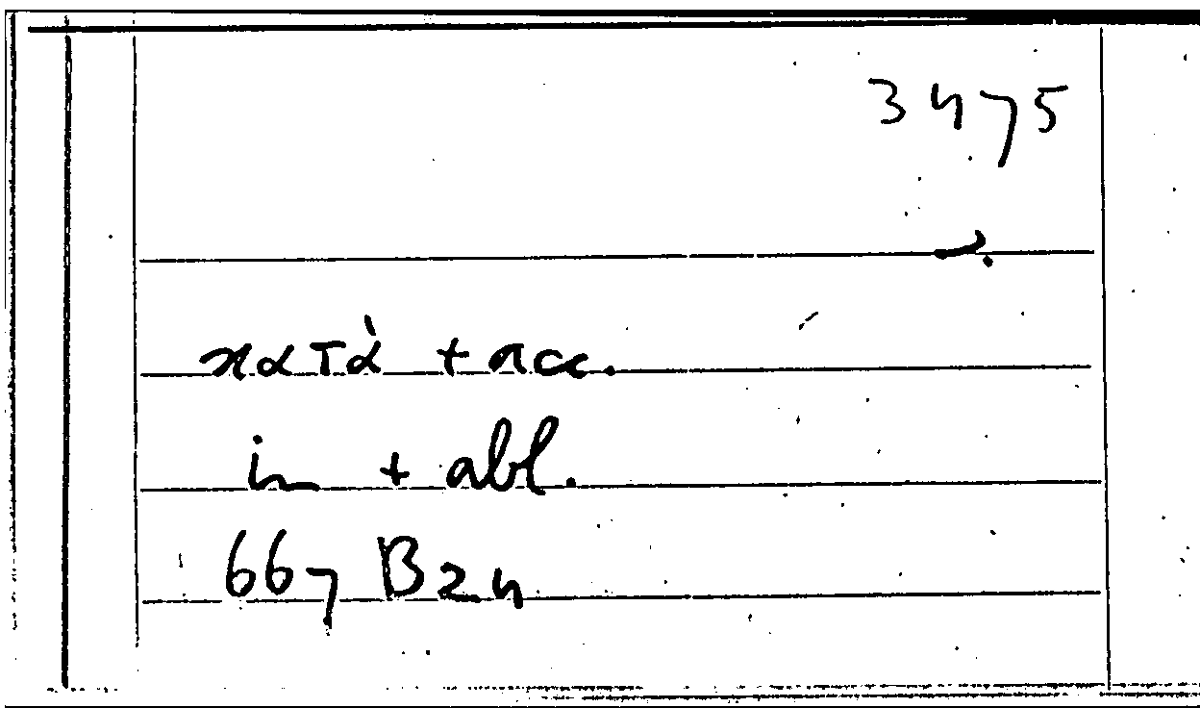 3475
κατὰ + acc.
in + abl.
667 B24